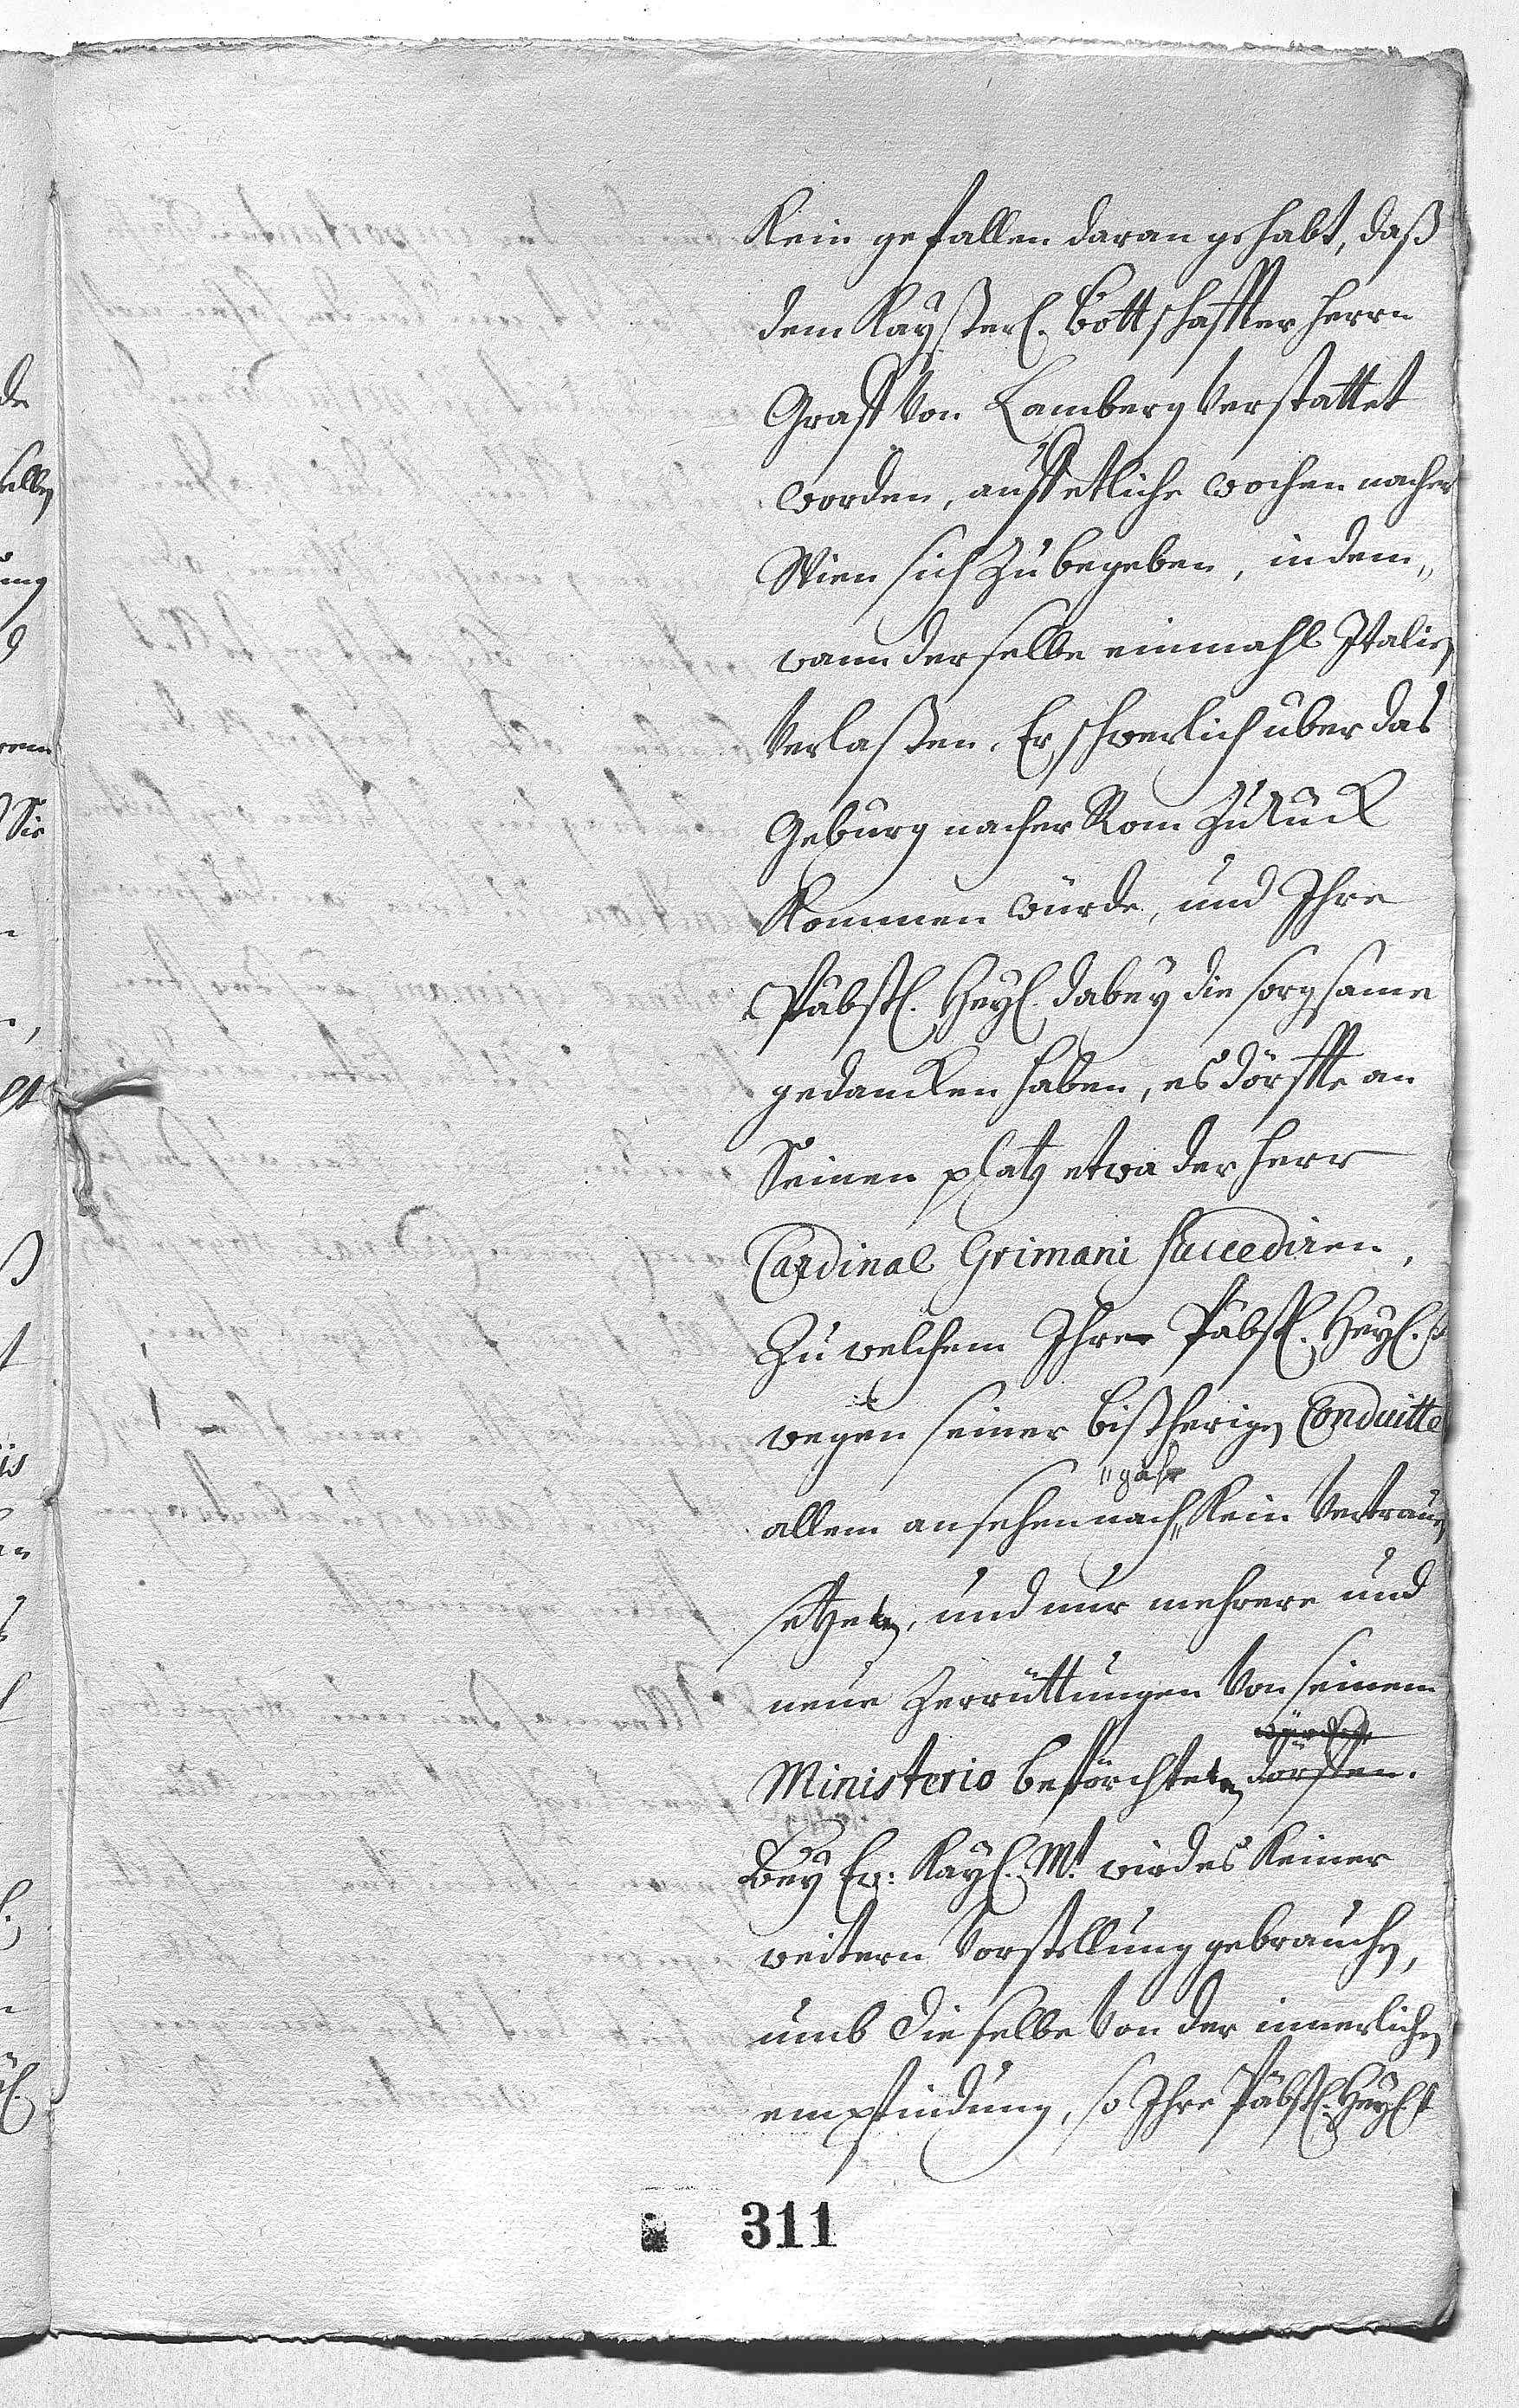 Kein gefallen daran gehabt, daß
dem Kayßerl. Bottschaffter Herrn
Graff von Lamberg verstattet
worden, auff etliche wochen nacher
Wien sich zu begeben, indem,,
wann derselbe einmahl Italien
verlaßen, Er schwerlich über das
Gebürg nacher Rom zurück
Kommen würde, und Ihre
Päbstl. Heyl. dabey die sorgsame
gedancken haben, es dörffte an
Seinen platz etwa der Herr
Cardinal Grimani succediren,
Zu welchem Ihre Päbstl. Heyl.
wegen seiner bißherigen Conduitte
"gahr
allem ansehen nach" Kein Vertrauen
setzeten, und nur mehrere und
neue Zerrüttungen von seinem
Ministerio beförchteten dörfften.
Bey Ew: Kayl. Mt. wird es Keiner
weitern Vorstellung gebrauchen,
umb Dieselbe von der innerlichen
empfindung, so Ihre Päbstl. Heylt
311